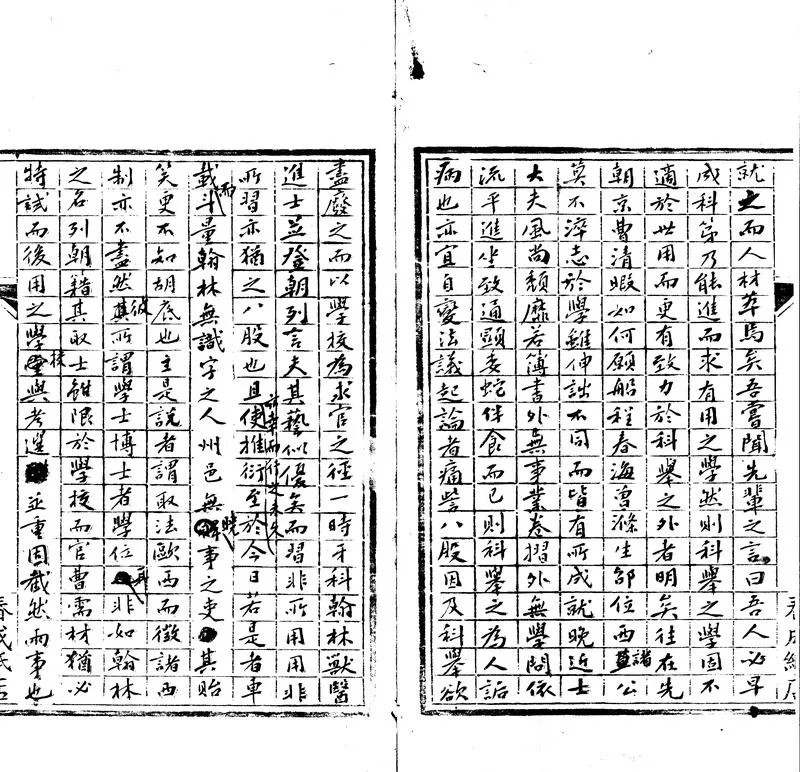 就之而人材萃焉矣吾嘗聞先輩之言曰吾人必早
成科第乃能進而求有用之學然則科舉之學固不
適於世用而更有致力於科舉之外者明矣往在先
朝京曹清暇如何願船程春海曾滌生邵位西諸公
莫不淬志於學雖伸詘不同而皆有所成就晚近士
大夫風尚頹靡若簿書外無事業卷摺外無學問依
流平進坐致通顯委蛇伴食而已則科舉之為人詬
病也亦宜自變法議起論者痛詈八股因及科舉欲
盡廢之而以學校為求官之徑一時牙科翰林獸醫
進士並登朝列言夫其藝似優矣而習非所用用非
所習亦猶之八股也且幸而行之未久使推衍至於今日若是者車
載斗量而翰林無識字之人州邑無曉事之吏其貽
笑更不知胡底也主是說者謂取法歐西而徵諸西
制亦不盡然彼所謂學士博士者學位耳非如翰林
之名列朝籍其取士雖限於學校而官曹需材猶必
特試而後用之學校與考選並重固截然兩事也